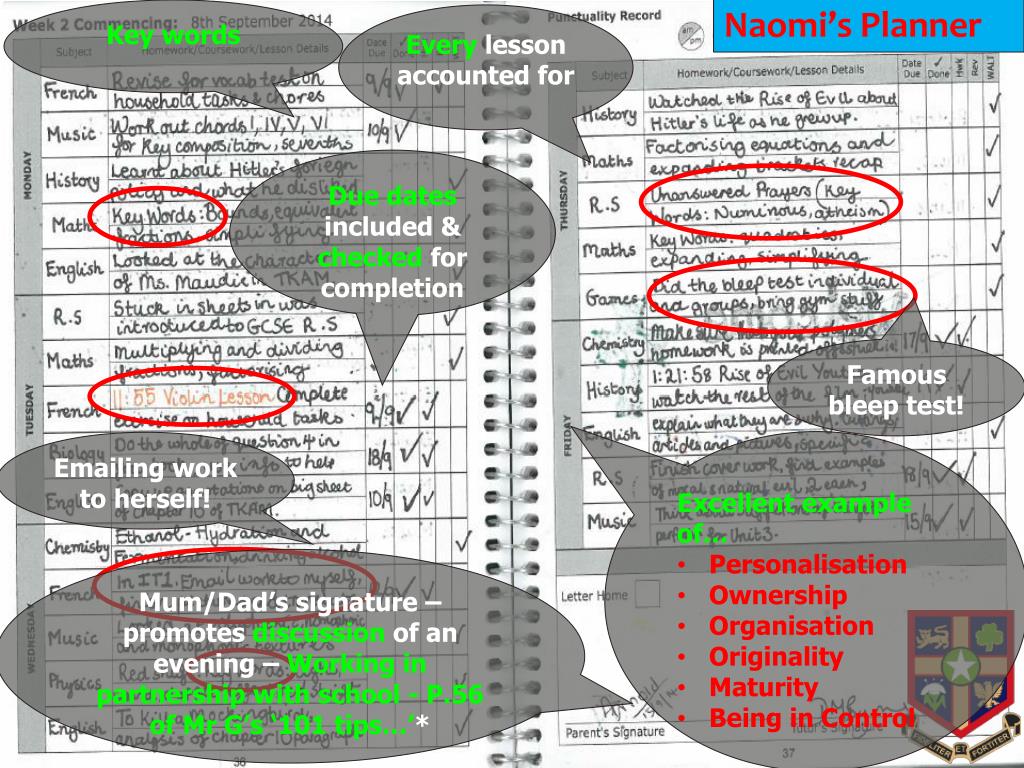 Week 2 Commencing: 8th September 2014
Key words
Subject
Homework/Coursework/Lesson Details
Date Due
French
Revise for vocab test on
household tasks & chores
9/9
Music
Work out chords I, IV, V, VI
for key composition, sevenths
10/9
MONDAY
History
Learnt about Hitler's foriegn
policy and what he
Maths
Key Words: Bounds, equivalent
fractions, simplifying
English
Looked at the character
of Ms. Maudie in TKAM
R.S
Stuck in sheets in
introduced to GCSE R.S
Maths
Multiplying and dividing
fractions, factorising
TUESDAY
French
11:55 Violin Lesson Complete
exercise on household tasks
9/9
Biology
Do the whole of question 4 in
info to help
18/9
Emailing work
to herself!
on big sheet
of chapter 10 of TKAM
10/9
Chemistry
Ethanol - Hydration and
Fermentation, drinking alcohol
French
In IT1. Email work to myself,
WEDNESDAY
Mum/Dad's signature –
promotes discussion of an
evening – Working in
partnership with school - P.56
of Mr G's '101 tips…'*
Music
Physics
English
To kill a mockingbird
analysis of chapter 10 paragraph
36
Punctuality Record
am
pm
Naomi's Planner
Every lesson
accounted for
Subject
Homework/Coursework/Lesson Details
Date Due
✓ Done
Hwk
Rev
WALT
History
Watched the Rise of Evil about
Hitler's life as he grew up.
Maths
Factorising equations and
expanding brackets recap
THURSDAY
R.S
Unanswered Prayers (Key
Words: Numinous, atheism)
Maths
Key Words: quadratics,
expanding, simplifying
Games
Did the bleep test individual
and groups, bring gym stuff
Due dates
included &
checked for
completion
Chemistry
Make sure
homework is printed off
17/9
History
1:21:58 Rise of Evil
watch the rest of the
Famous
bleep test!
FRIDAY
English
explain what they are
articles and pictures, specific
R.S
Finish cover work, find examples
of moral & natural evil, 2 each,
18/9
Music
for Unit 3.
15/9
Excellent example
of…
• Personalisation
• Ownership
• Organisation
• Originality
• Maturity
• Being in Control
Letter Home
Parent's Signature
Tutor's Signature
37
ET
FORTITER